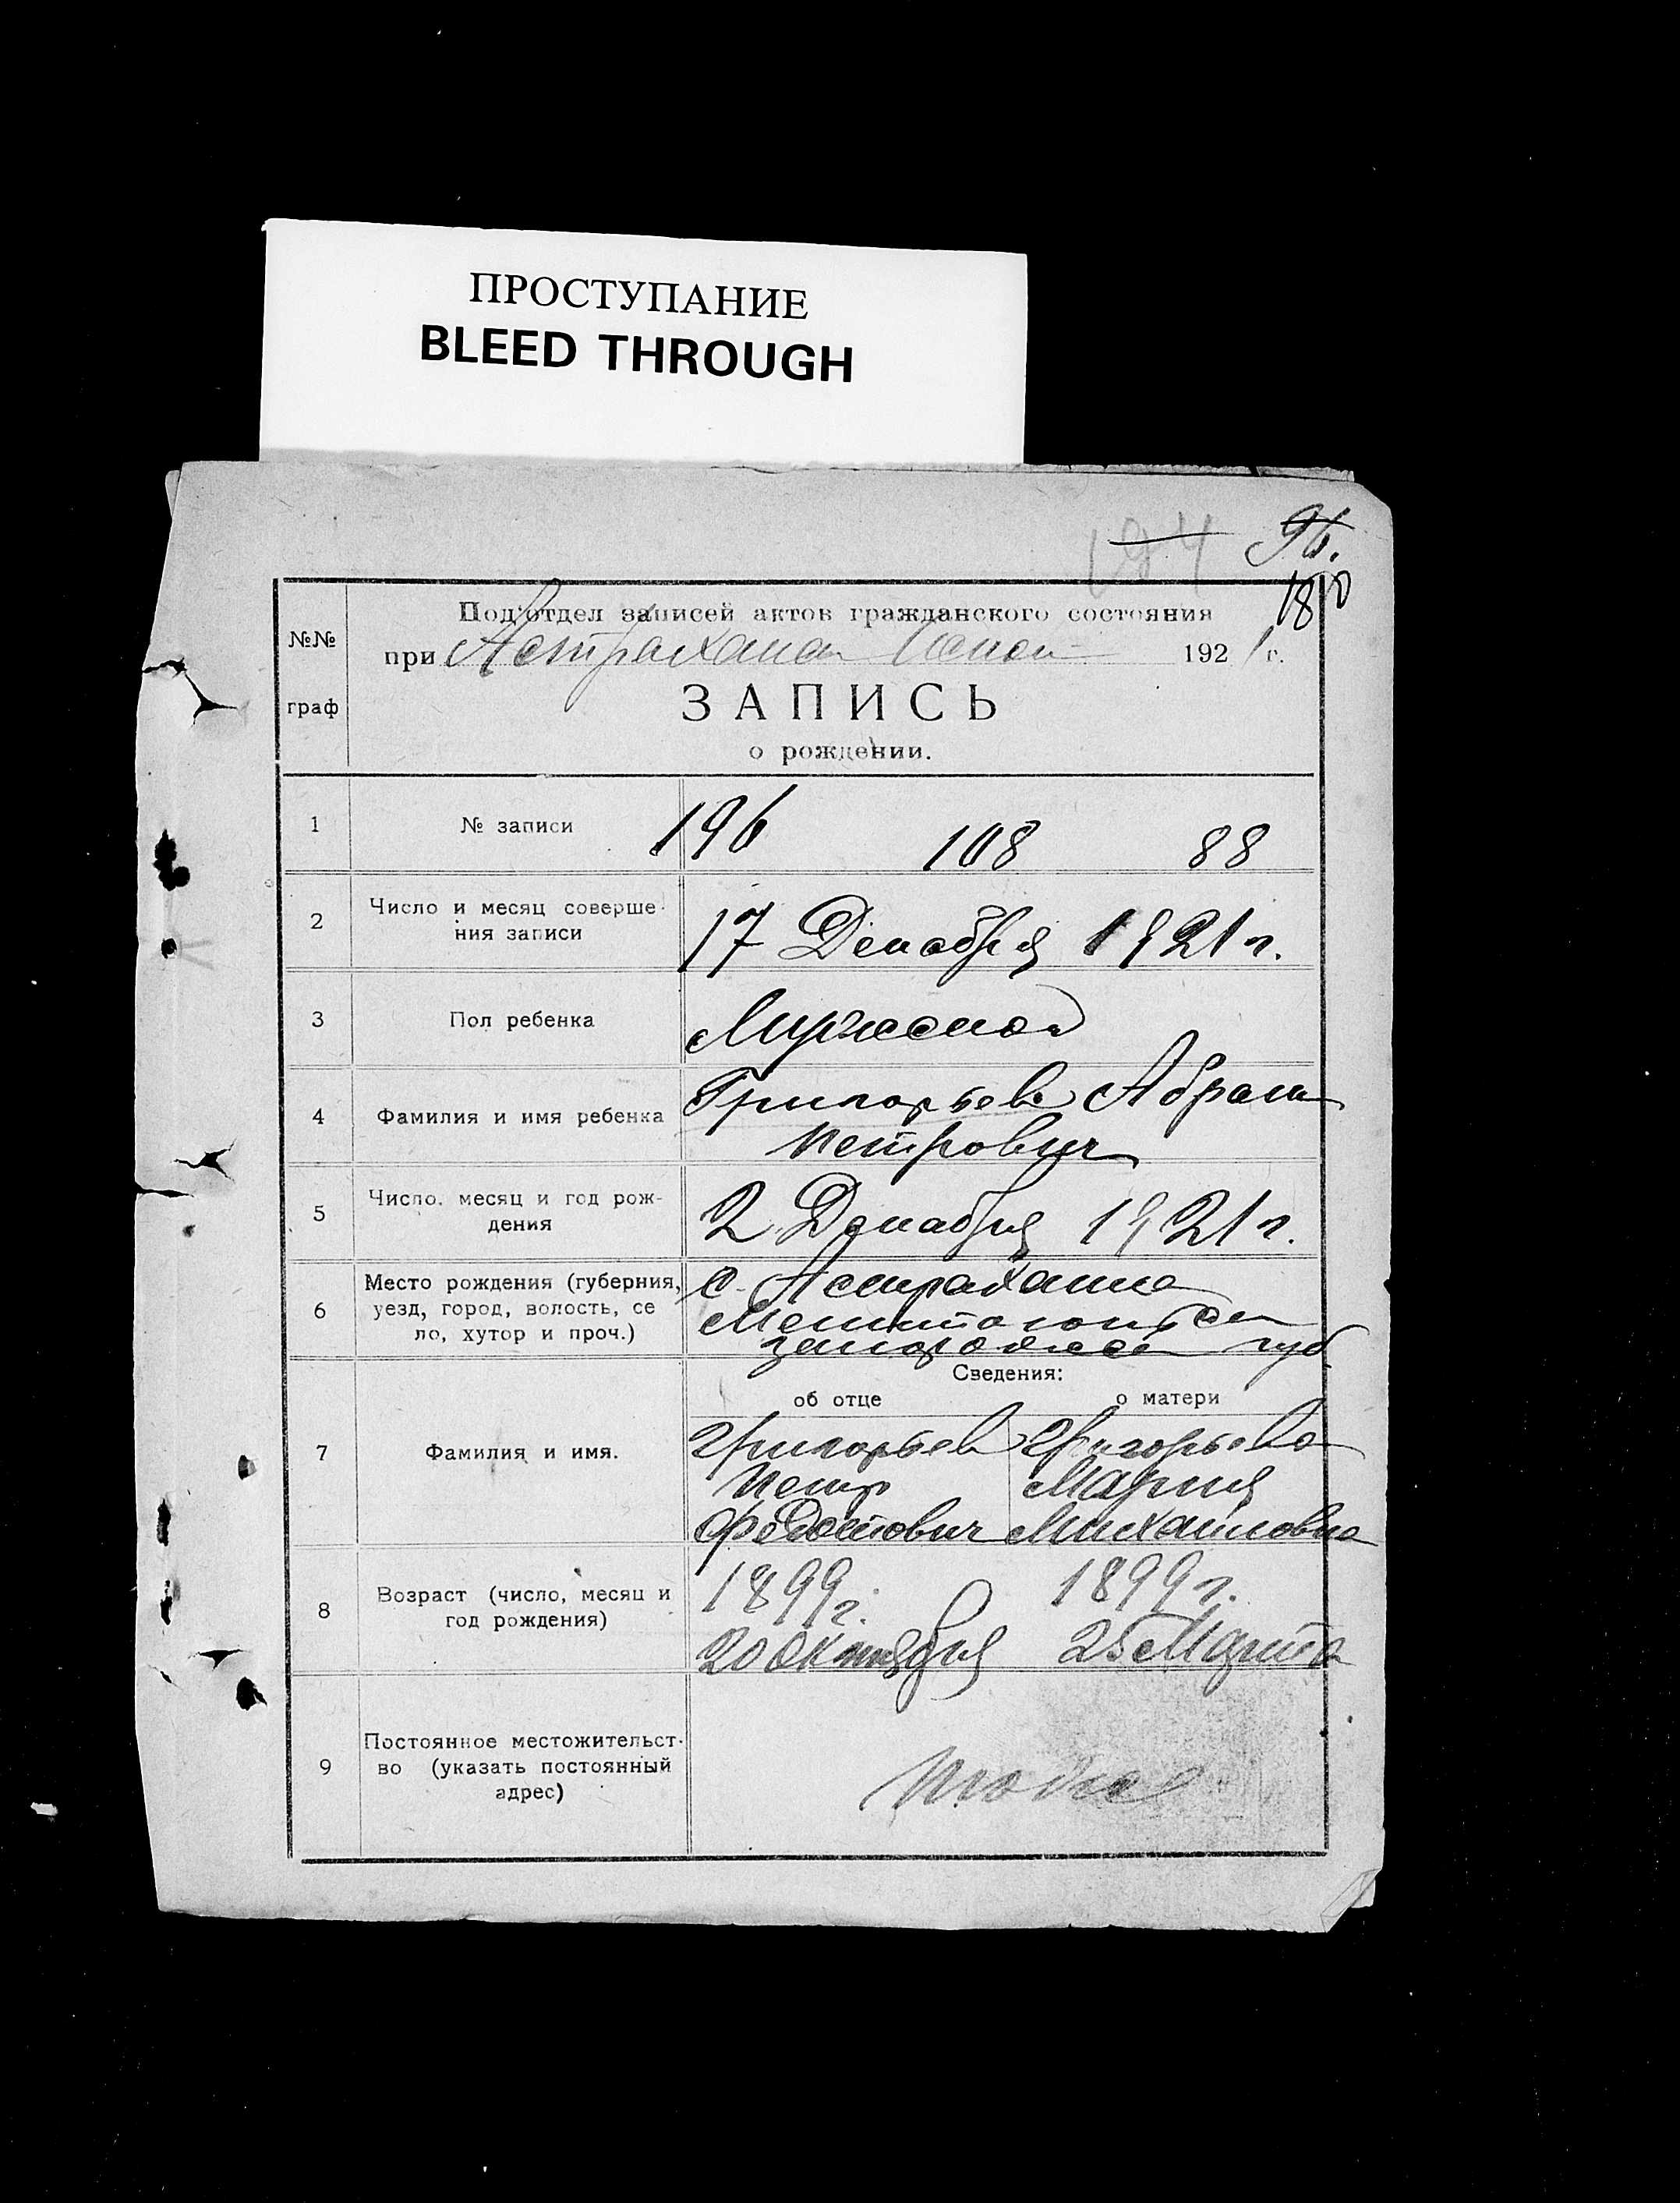 ПРОСТУПАНИЕ
BLEED THROUGH
194 96.
180
№№ граф
Под'отдел записей актов гражданского состояния
при Астраханском 1921 г.
ЗАПИСЬ
о рождении.
1 № записи 196 108 88
2 Число и месяц соверше-
ния записи
17 Декабря 1921 г.
3 Пол ребенка Мужеской
4 Фамилия и имя ребенка Григорьев Абрам
Петрович
5 Число, месяц и год рож-
дения
2 Декабря 1921 г.
6 Место рождения (губерния,
уезд, город, волость, се
ло, хутор и проч.)
с. Астраханка
Мелитопольской
запорожской губ
Сведения:
об отце о матери
7 Фамилия и имя.
Григорьев Григорьева
Петр Мария
Федотович Михайловна
8 Возраст (число, месяц и
год рождения)
1899 г. 1899 г.
20 октября 25 Марта
9 Постоянное местожительст-
во (указать постоянный
адрес)
тоже